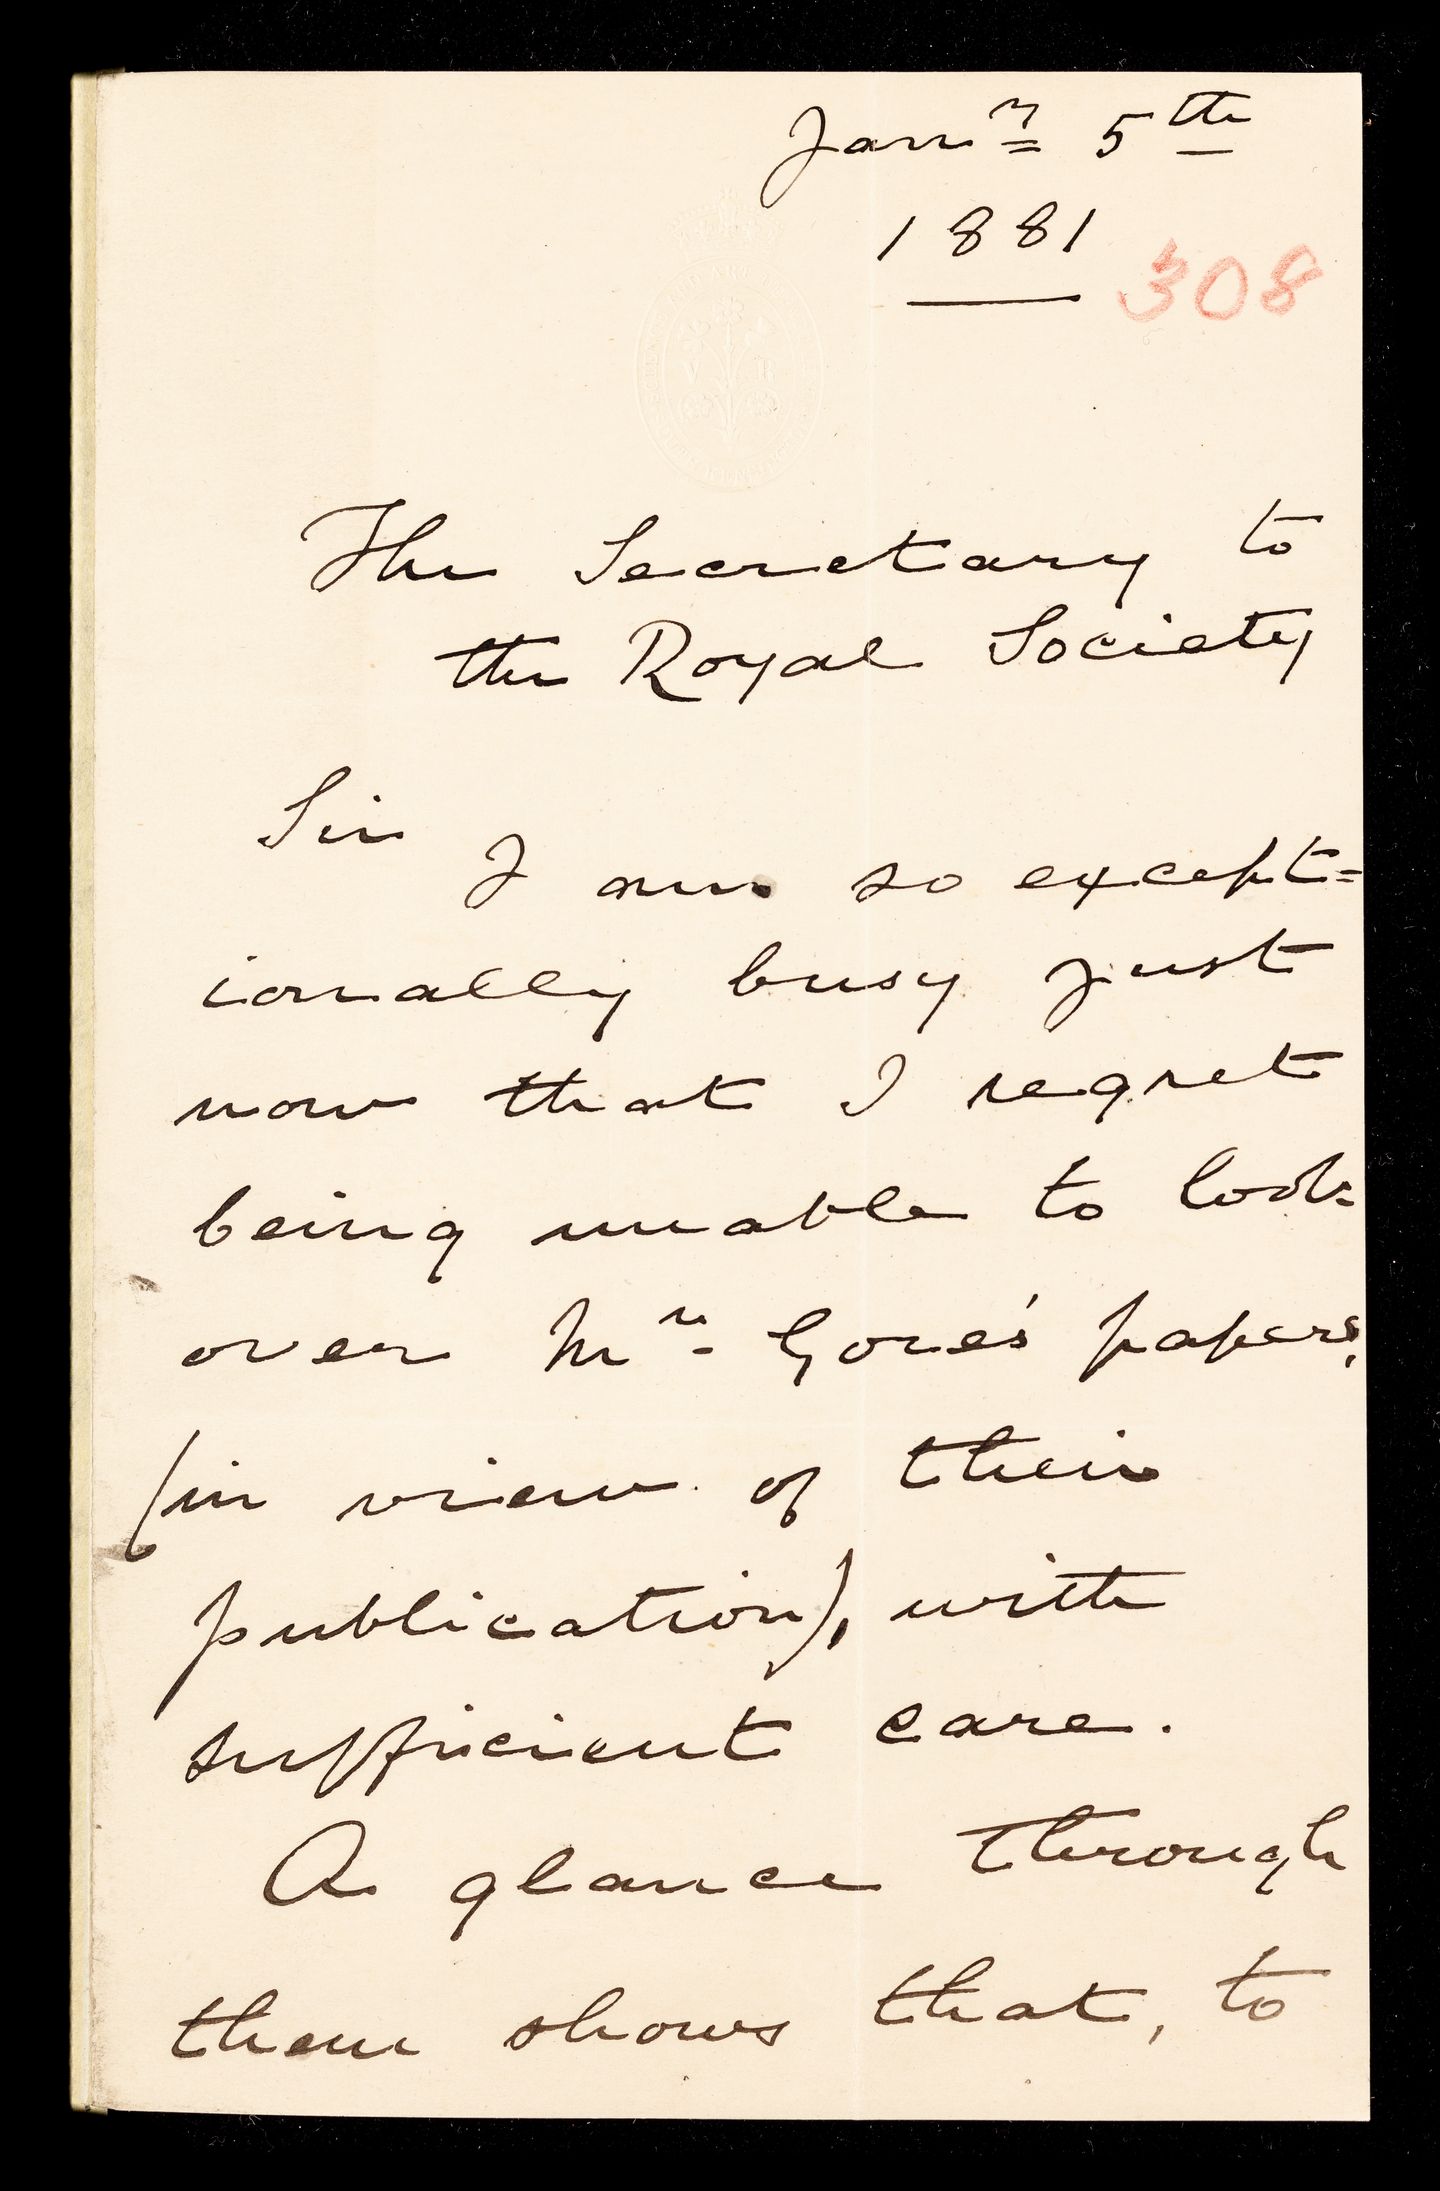 Jany 5th
1881
308
V R
The Secretary to
the Royal Society
Sir
I am so except=
ionally busy just
now that I regret
being unable to look
over Mr. Gore's papers,
(in view of their
publication), with
sufficient care.
A glance through
them shows that, to